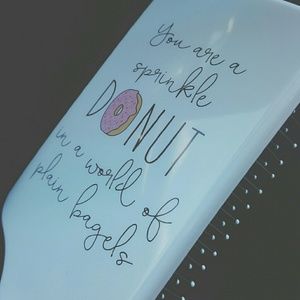 You are a
sprinkle
DONUT
in a world of
plain bagels